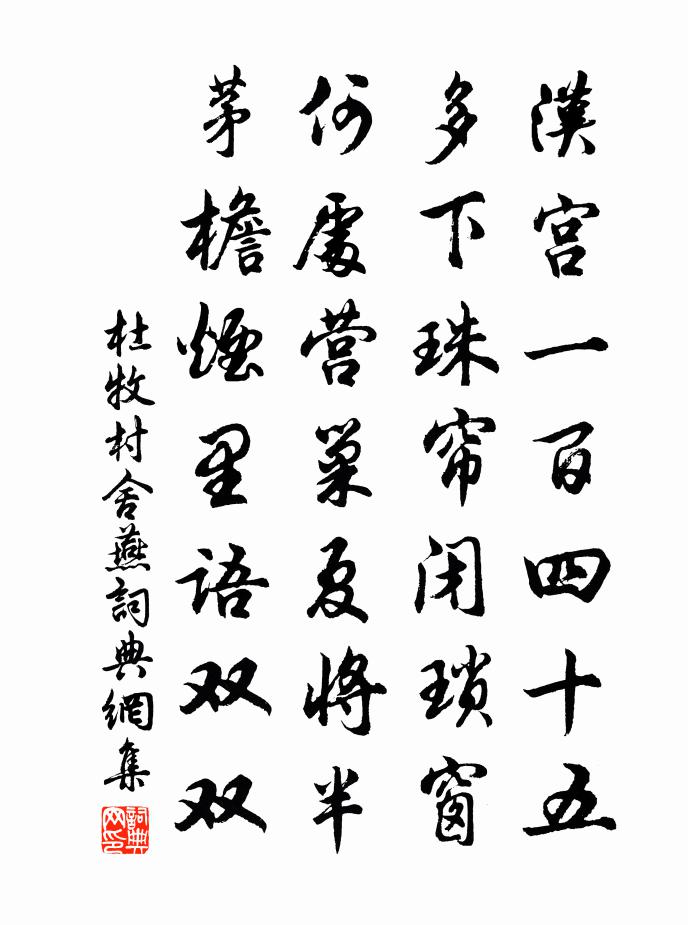 漢宫一百四十五
多下珠帘闭瑣窗
何處营巢夏將半
茅檐煙里語双双
杜牧村舍燕詞典網集
詞典网印